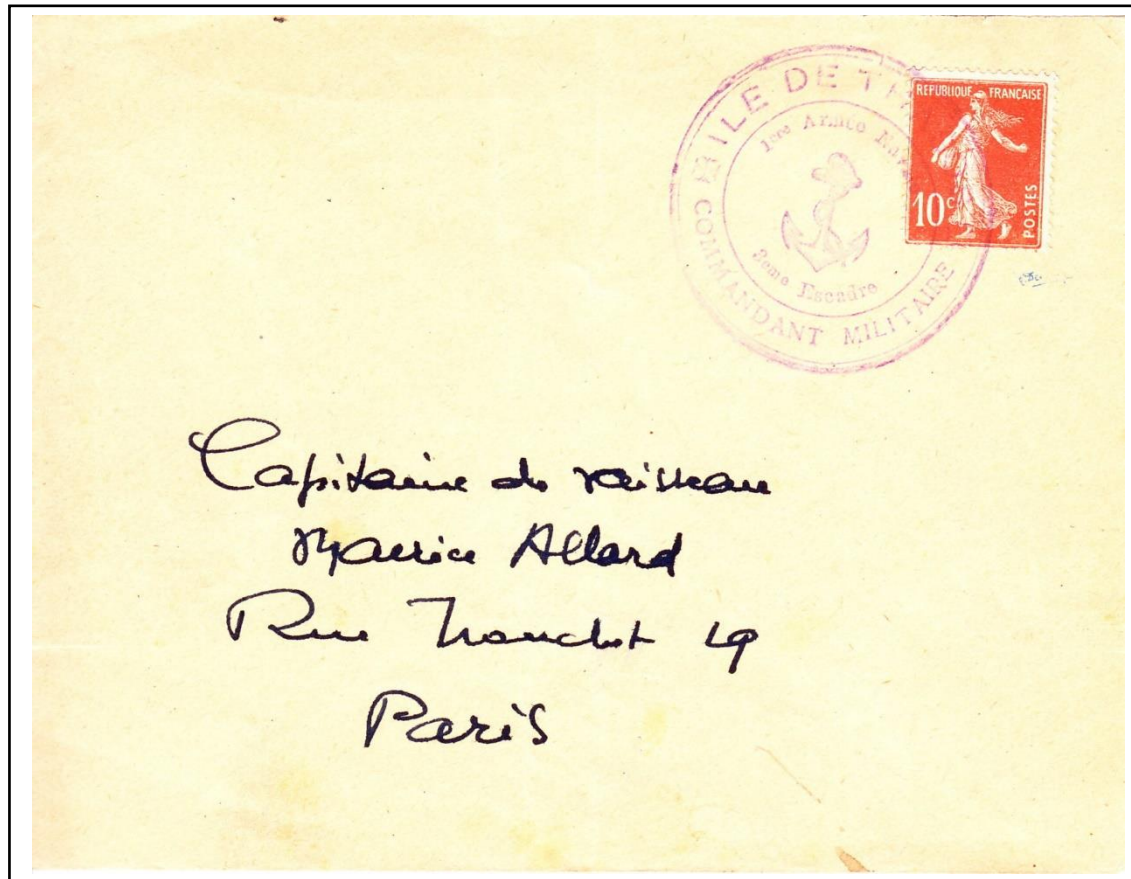 ILE DE
1ere Armée
3eme Escadre
COMMANDANT MILITAIRE
REPUBLIQUE FRANÇAISE
10c
POSTES
Capitaine de vaisseau
Maurice Allard
Rue Tronchet
Paris